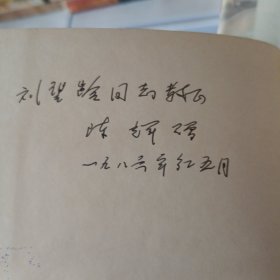 刘望龄同志教正
陈辉
一九八六年红五月